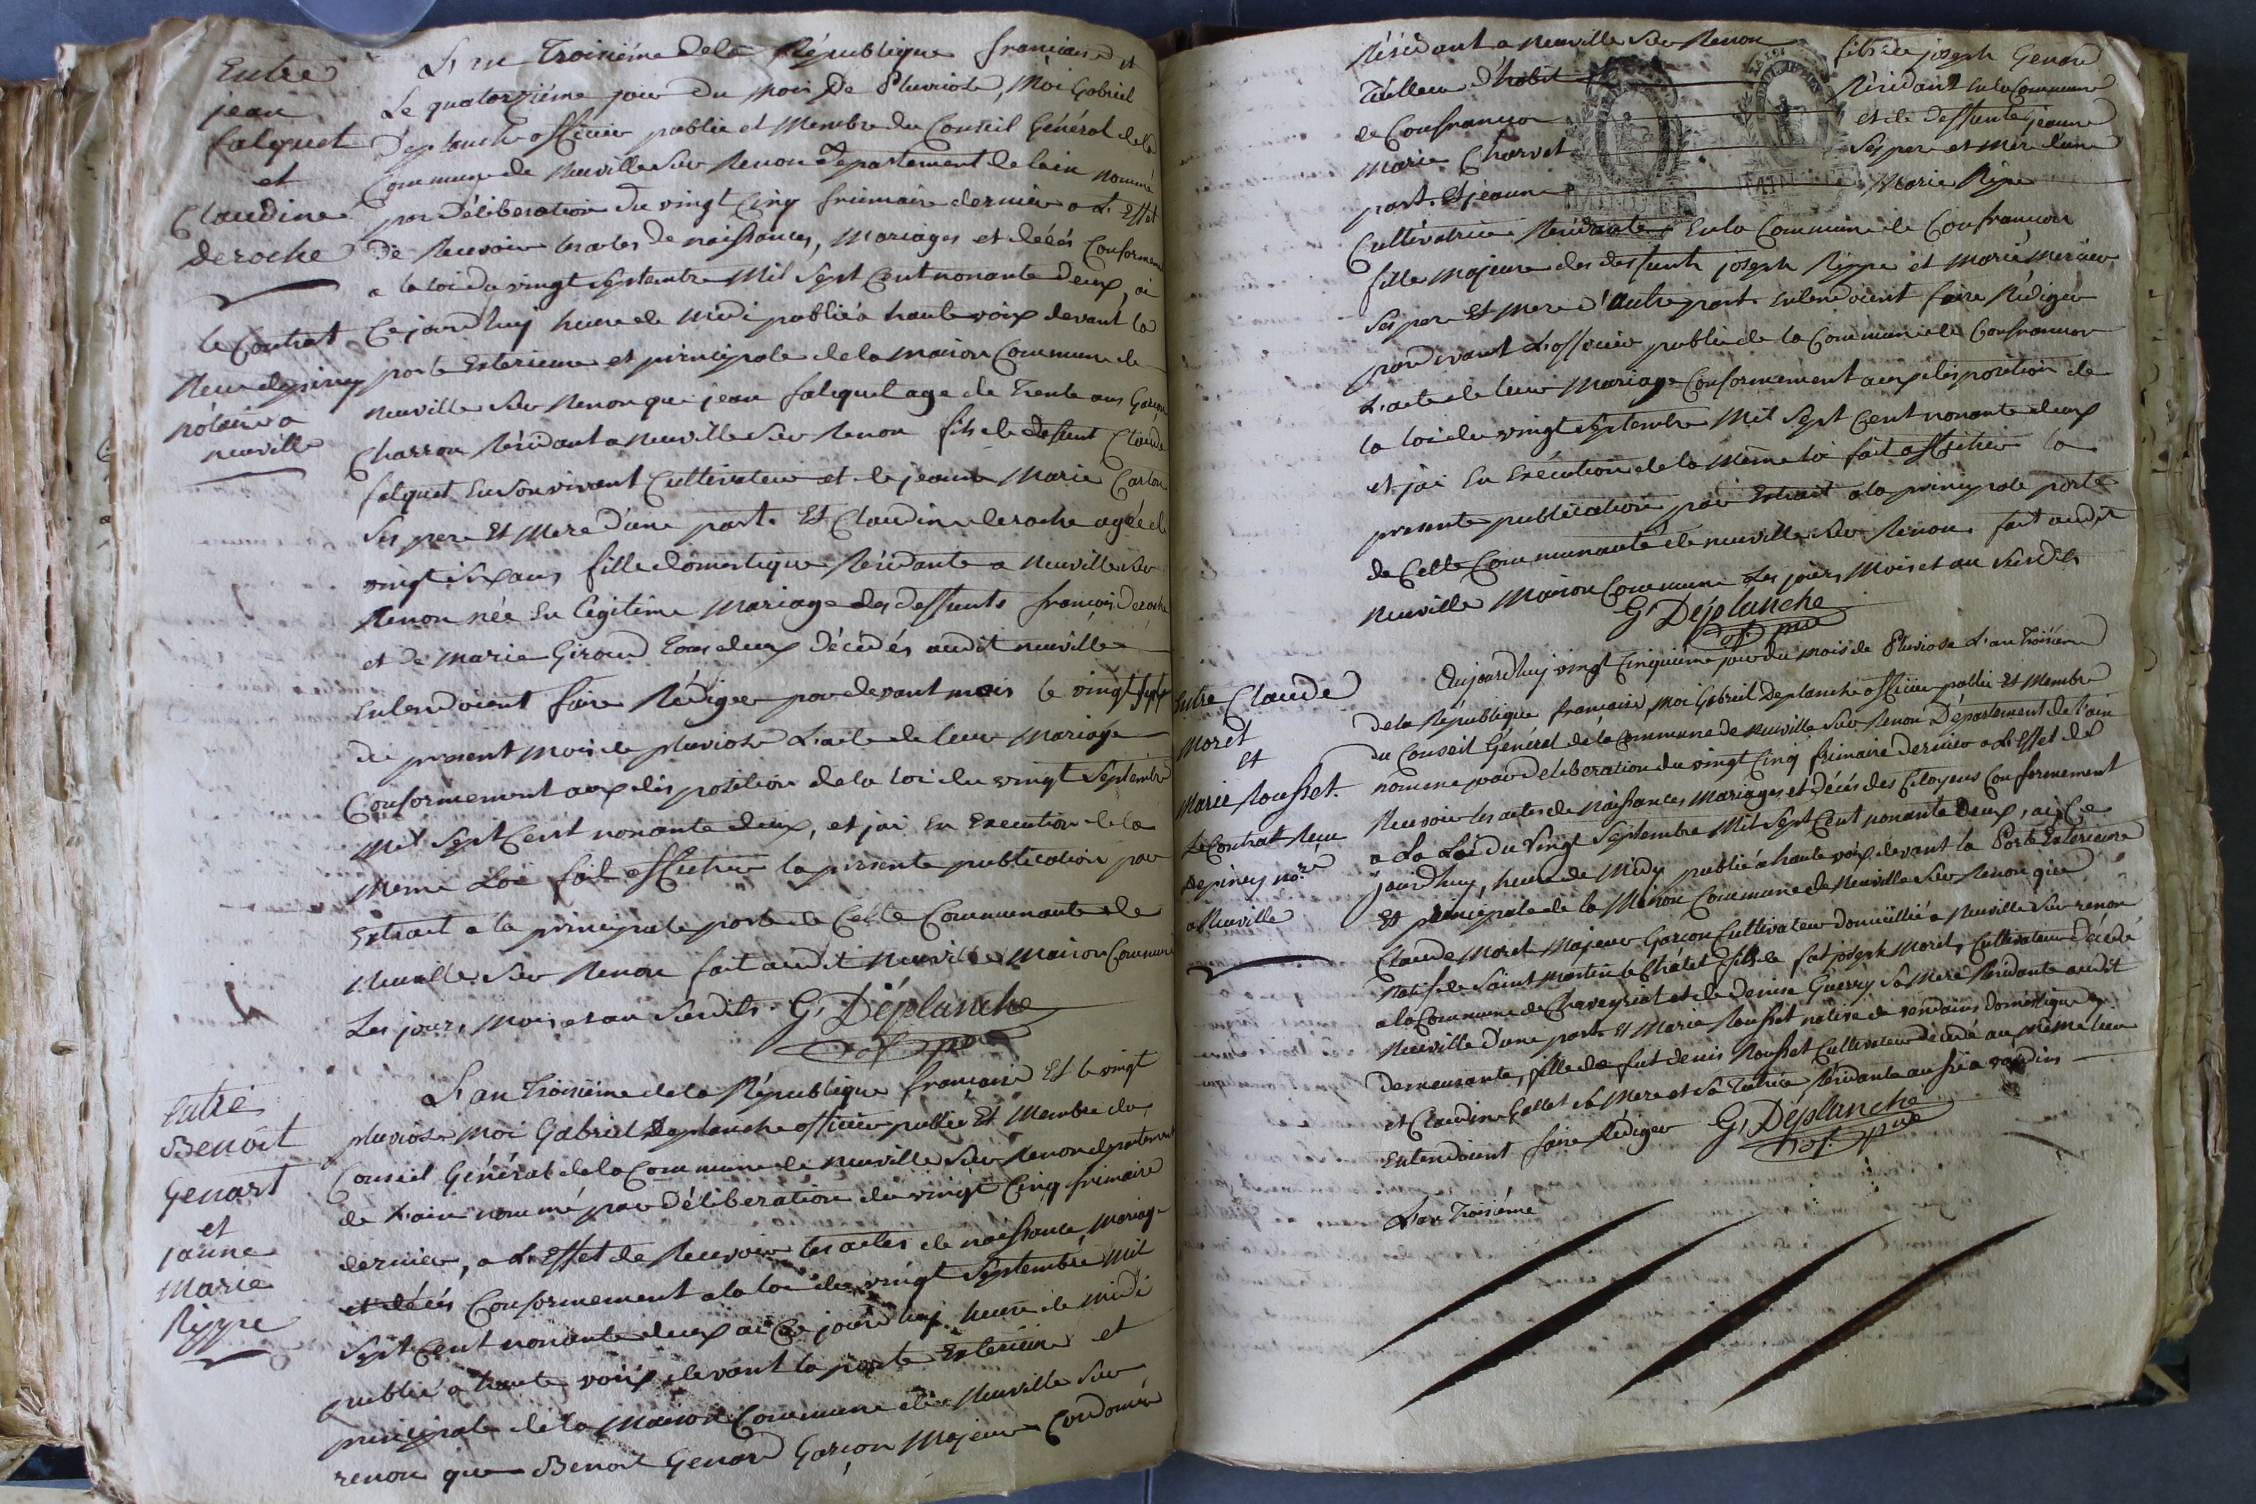 Entre
jean
falquet
et
Claudine
deroche
le Contrat
Reçu depiney
notaire a
neuville
L'an Troisiéme de la République francaise et
Le quatorziéme jour du Mois De Pluviose, Moi Gabriel
Déplanche officier public et Membre du Conseil Général de la
Commune de Neuville Sur Renon Département de lain nommé
par Déliberation du vingt Cinq frimaire dernier a L'Effet
De Recevoir les actes de naissances, Mariages et décés Conformem
a la loi du vingt Septembre Mil Sept Cent nonante Deux, ai
Ce jourd'huy heure de Midi publié a haute voix devant la
porte Exterieure et principale de la Maison Commune de
Neuville Sur Renon que jean falquet age de Trente ans Garçon
Charron Résidant a Neuville Sur Renon fils de defunt Claude
falquet En Son vivant Cultivateur et de jeanne Marie Carlon
Ses pere Et Mere d'une part. Et Claudine deroche agée de
vingt Six ans fille domestique Résidante a Neuville Sur
Renon née En légitime Mariage des deffunts françois Deroche
et de Marie Giroud Tous deux Décédés audit neuville
Entendoient faire Rédiger par devant mois le vingt Sept
du present Mois de pluviose L'acte de leur Mariage
Conformement aux disposition de la loi du vingt Septembre
Mil Sept Cent nonante deux, et jai En Execution de la
Meme Loi fait afficher la presente publication par
Extrait a la principale porte de Cette Communaute de
Neuville Sur Renon fait audit Neuville Maison Commune
Les jour, Mois et an Susdits. G, Déplanche
of. pue
Entre
Benoit
Genart
et
janne
Marie
Rippe
L'an Troisiéme de la République française Et le vingt
pluviose Moi Gabriel Deplanche officier public Et Membre du
Conseil Général de la Commune de Neuville Sur Renon departement
de L'ain nommé par Déliberation du vingt Cinq frimaire
dernier, a L'Effet de Recevoir les actes de naissance, Mariage
et décés Conformement a la loi du vingt Septembre Mil
Sept Cent nonante deux ai Ce jourd'huy heure de Midi
publié a haute voix devant la porte Exterieure et
principale de la Maison Commune de Neuville Sur
renon que Benoit Genard Garçon Majeur Cordonnié
Résidant a Neuville Sur Renon fils de joseph Genard
Tailleur d'habit Résidant En la Commune
de Confrançon et de deffunte jeanne
Marie Charvet Ses pere et Mere d'une
part. Et jeanne Marie Rippe
Cultivatrice Résidante En la Commune de Confrançon
fille Majeure des deffunts joseph Rippe et Marie Mercier
Ses pere Et Mere d'autre part. Entendoient faire Rédiger
pardevant L'officier public de la Commune de Confrançon
L'acte de leur Mariage Conformement aux disposition de
la loi du vingt Septembre Mil Sept Cent nonante deux
et jai En Exécution de la Même loi fait afficher la
presente publication par Extrait a la principale porte
de Cette Communauté de neuville Sur Renon. fait audit
Neuville Maison Commune Les jour, Mois et an Susdits
G, Déplanche
of. pue
Entre Claude
Moret
et
Marie Rousset.
Le Contrat Reçu
Depiney nore
a Neuville
Aujourd'huy vingt Cinquiéme jour du Mois de Pluviose L'an Troisiéme
de la République française, Moi Gabriel Deplanche officier public Et Membre
du Conseil Général de la Commune de Neuville Sur Renon Département de l'ain
nommé par Déliberation du vingt Cinq frimaire Dernier a L'Effet de
Recevoir les actes de Naissances Mariages et Décés des Citoyens Conformement
a La Loi du Vingt Septembre Mil Sept Cent nonante Deux, ai Ce
jourd'huy, heure de Midy publié a haute voix devant la Porte Exterieure
Et principale de la Maison Commune de Neuville Sur Renon que
Claude Moret Majeur Garçon Cultivateur domicillié a Neuville Sur renon
Natif de Saint Martin le Châtel, fils de fut joseph Moret, Cultivateur décédé
a la Commune de Chaveyriat et de Denise Guerry Sa Mere Résidante audit
Neuville d'une part. Et Marie Rousset native de vandains domestique y
demeurante, fille de fut denis Rousset Cultivateur décédé au même lieu
et Claudine Gallet Sa Mere et Sa Tutrice Résidante aussi a vandins
Entendoient faire Rédiger G, Déplanche
of. pue
L'an Troisiéme